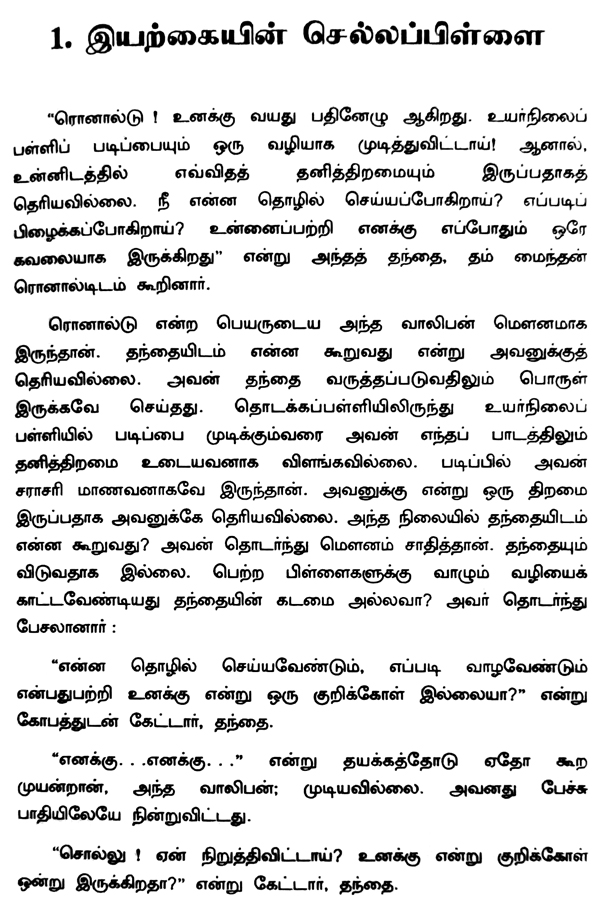 1. இயற்கையின் செல்லப்பிள்ளை
“ரொனால்டு ! உனக்கு வயது பதினேழு ஆகிறது. உயர்நிலைப்
பள்ளிப் படிப்பையும் ஒரு வழியாக முடித்துவிட்டாய்! ஆனால்,
உன்னிடத்தில் எவ்விதத் தனித்திறமையும் இருப்பதாகத்
தெரியவில்லை. நீ என்ன தொழில் செய்யப்போகிறாய்? எப்படிப்
பிழைக்கப்போகிறாய்? உன்னைப்பற்றி எனக்கு எப்போதும் ஒரே
கவலையாக இருக்கிறது” என்று அந்தத் தந்தை, தம் மைந்தன்
ரொனால்டிடம் கூறினார்.
ரொனால்டு என்ற பெயருடைய அந்த வாலிபன் மௌனமாக
இருந்தான். தந்தையிடம் என்ன கூறுவது என்று அவனுக்குத்
தெரியவில்லை. அவன் தந்தை வருத்தப்படுவதிலும் பொருள்
இருக்கவே செய்தது. தொடக்கப்பள்ளியிலிருந்து உயர்நிலைப்
பள்ளியில் படிப்பை முடிக்கும்வரை அவன் எந்தப் பாடத்திலும்
தனித்திறமை உடையவனாக விளங்கவில்லை. படிப்பில் அவன்
சராசரி மாணவனாகவே இருந்தான். அவனுக்கு என்று ஒரு திறமை
இருப்பதாக அவனுக்கே தெரியவில்லை. அந்த நிலையில் தந்தையிடம்
என்ன கூறுவது? அவன் தொடர்ந்து மௌனம் சாதித்தான். தந்தையும்
விடுவதாக இல்லை. பெற்ற பிள்ளைகளுக்கு வாழும் வழியைக்
காட்டவேண்டியது தந்தையின் கடமை அல்லவா? அவர் தொடர்ந்து
பேசலானார் :
“என்ன தொழில் செய்யவேண்டும், எப்படி வாழவேண்டும்
என்பதுபற்றி உனக்கு என்று ஒரு குறிக்கோள் இல்லையா?” என்று
கோபத்துடன் கேட்டார், தந்தை.
“எனக்கு. . .எனக்கு. . .” என்று தயக்கத்தோடு ஏதோ கூற
முயன்றான், அந்த வாலிபன்; முடியவில்லை. அவனது பேச்சு
பாதியிலேயே நின்றுவிட்டது.
“சொல்லு ! ஏன் நிறுத்திவிட்டாய்? உனக்கு என்று குறிக்கோள்
ஒன்று இருக்கிறதா?” என்று கேட்டார், தந்தை.